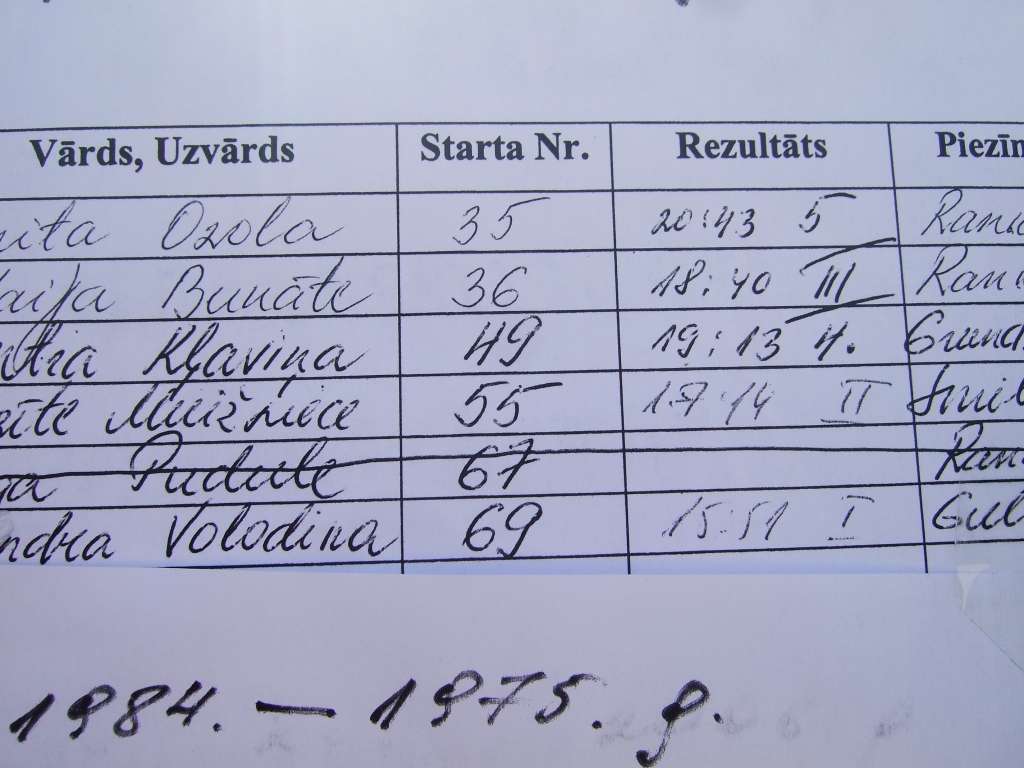 Vārds, Uzvārds Starta Nr. Rezultāts Piezīm
nita Ozola 35 20:43 5 Rank
aija Bunāte 36 18:40 III Ran
ntra Kļaviņa 49 19:13 4. Grund
Muižniece 55 17:14 II Smil
ga Pudule 67 Ran
ndra Volodina 69 15:51 I Gul
1984. — 1975. g.